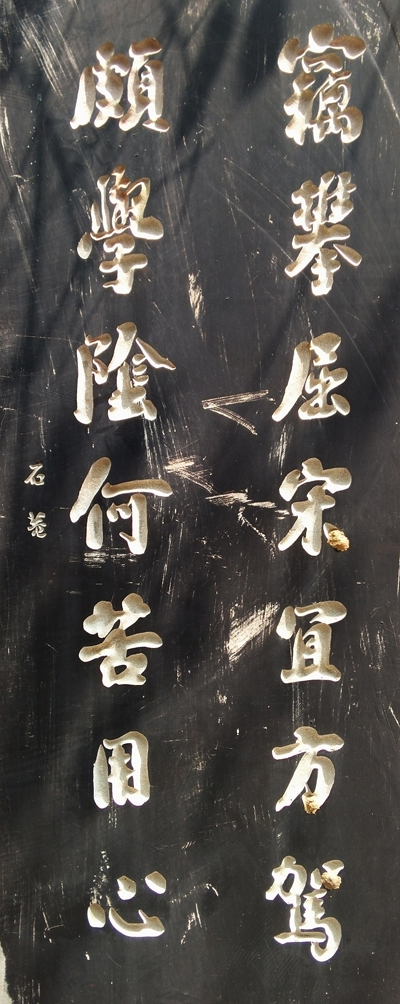 竊攀屈宋宜方駕
頗學陰何苦用心
石菴